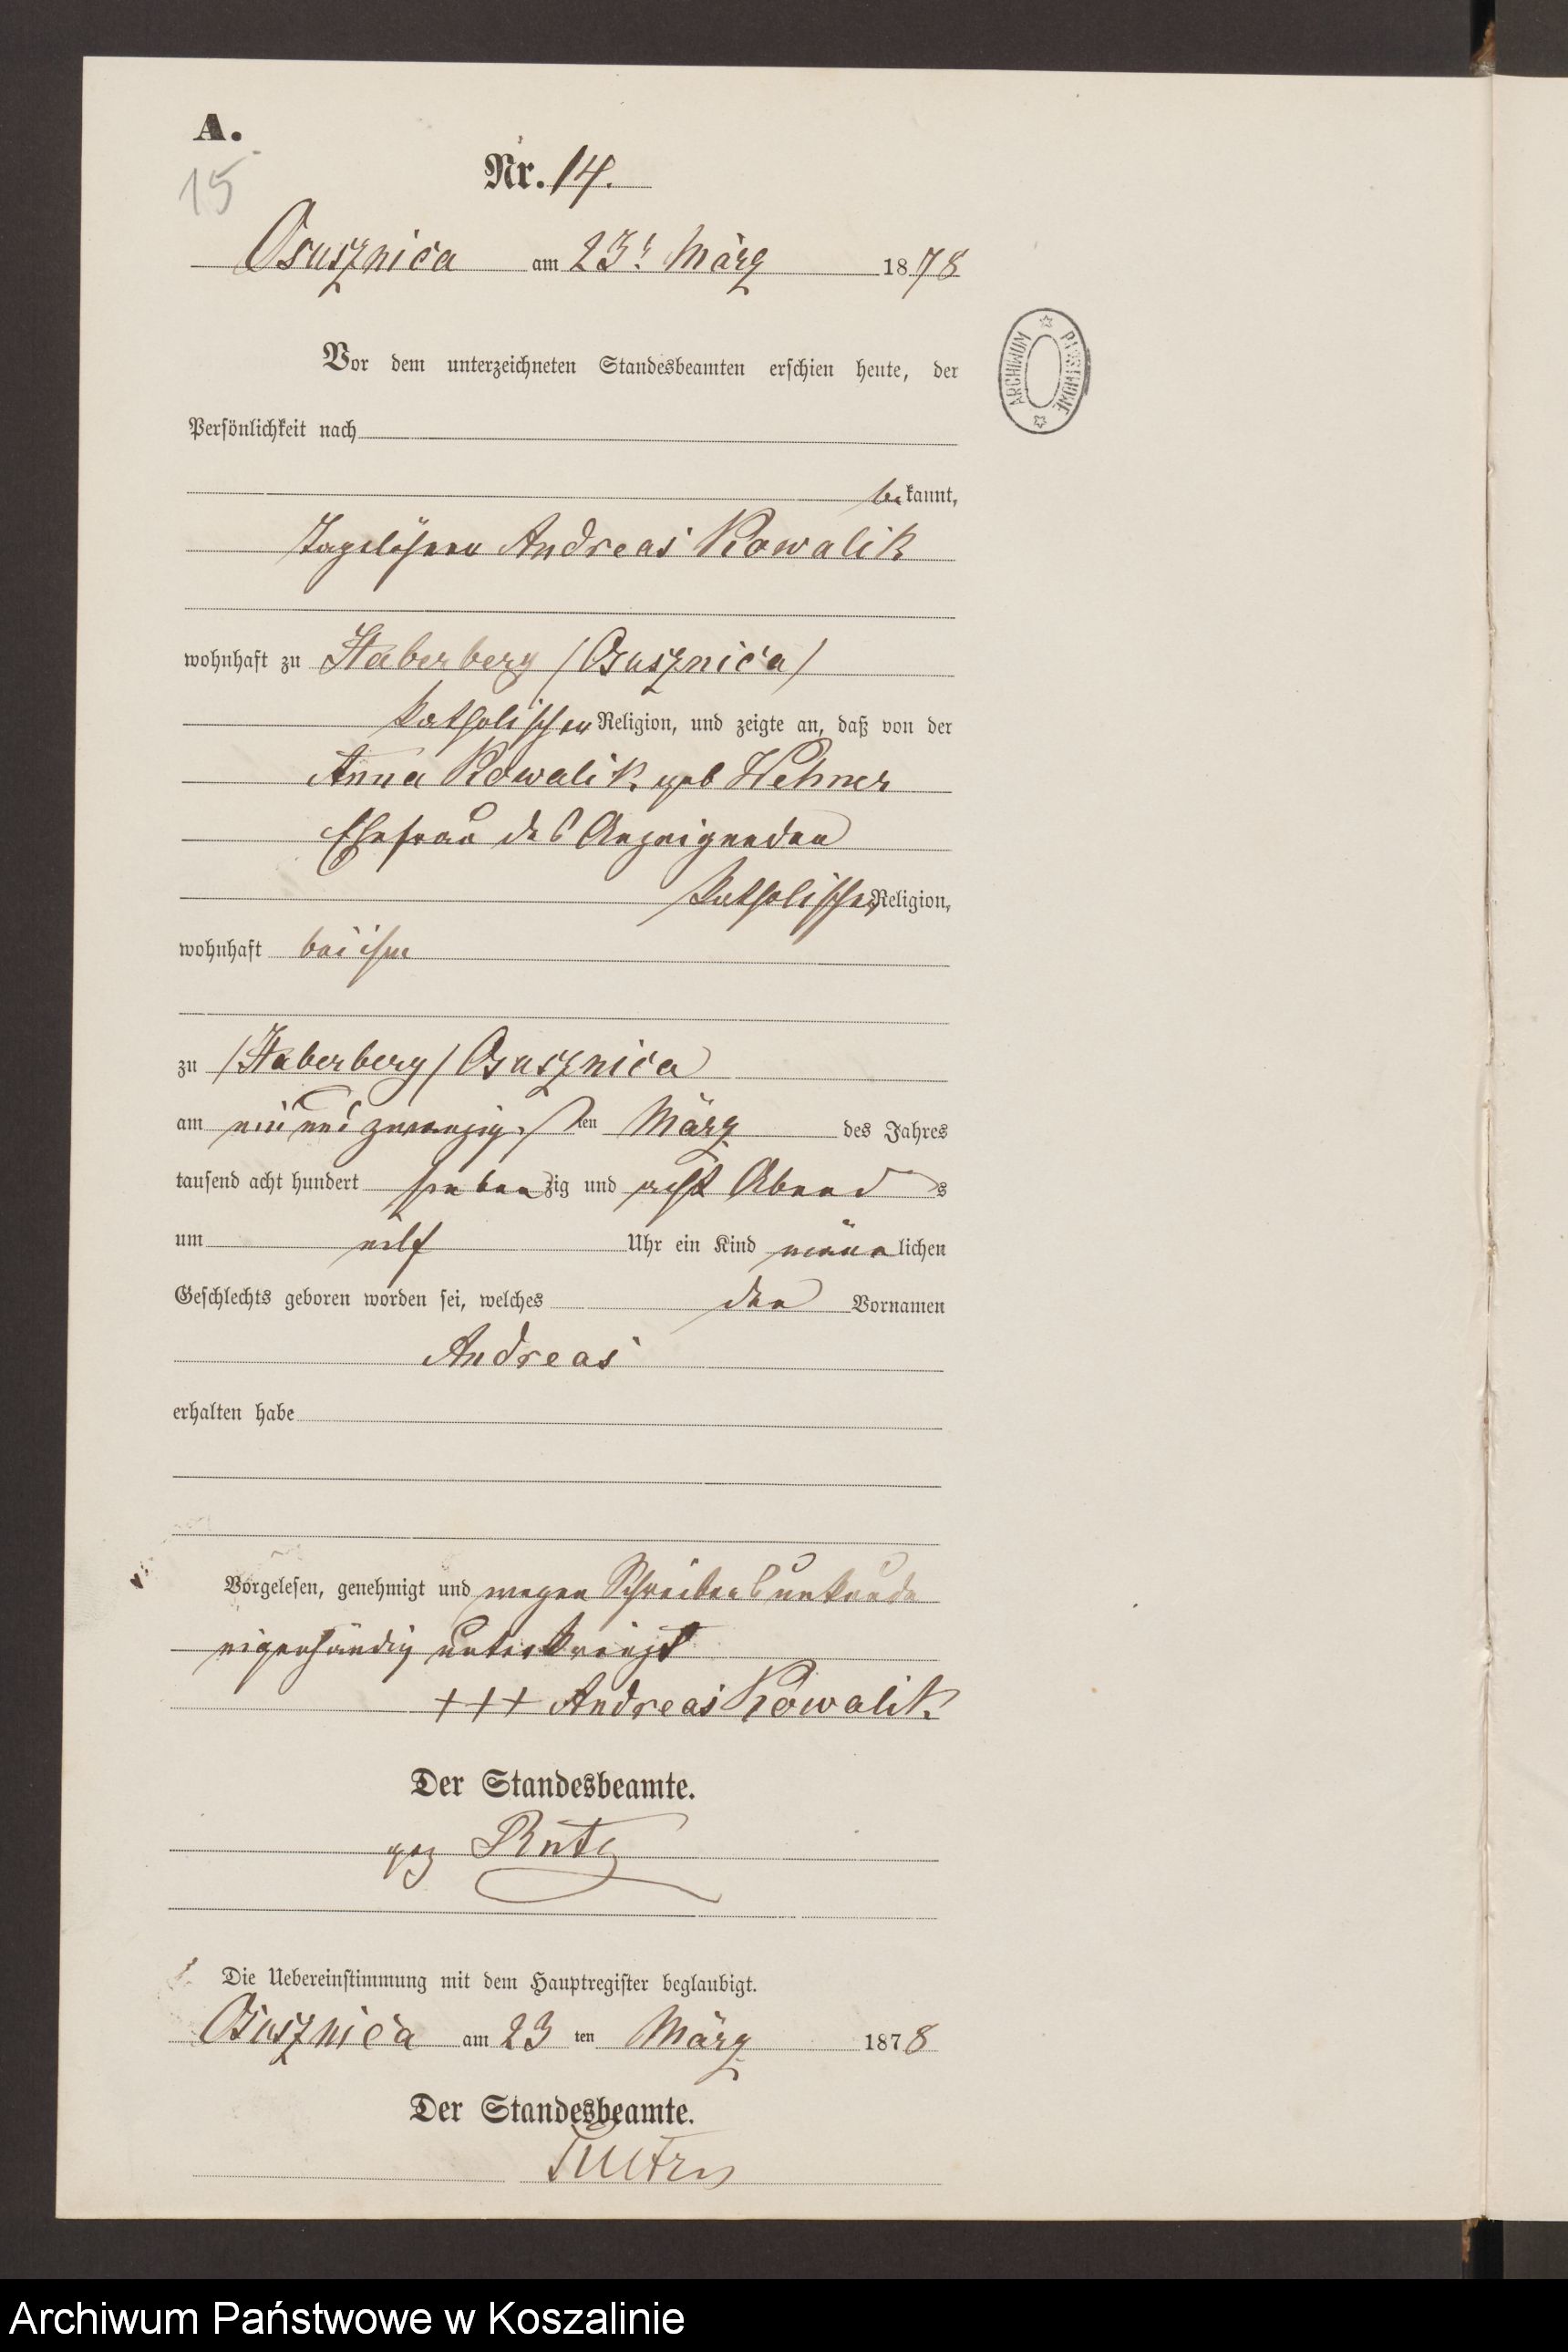 A.
15
Nr. 14.
Osusznica am 23t März 1878
ARCHIWUM PAŃSTWOWE
Vor dem unterzeichneten Standesbeamten erschien heute, der
Persönlichkeit nach
bekannt,
Tagelöhner Andreas Kowalik
wohnhaft zu Haberberg /Osusznica/
katholischer Religion, und zeigte an, daß von der
Anna Kowalik geb Wehner
Ehefrau des Anzeigenden
katholischer Religion,
wohnhaft bei ihm
zu /Haberberg/ Osusznica
am ein und zwanzigsten März des Jahres
tausend acht hundert siebenzig und acht Abends
um eilf Uhr ein Kind männlichen
Geschlechts geboren worden sei, welches den Vornamen
Andreas
erhalten habe
Vorgelesen, genehmigt und wegen Schreibensunkunde
eigenhändig unterkreuzt
+++ Andreas Kowalik
Der Standesbeamte.
gez
Die Uebereinstimmung mit dem Hauptregister beglaubigt.
Osusznica am 23 ten März 1878
Der Standesbeamte.
Archiwum Państwowe w Koszalinie